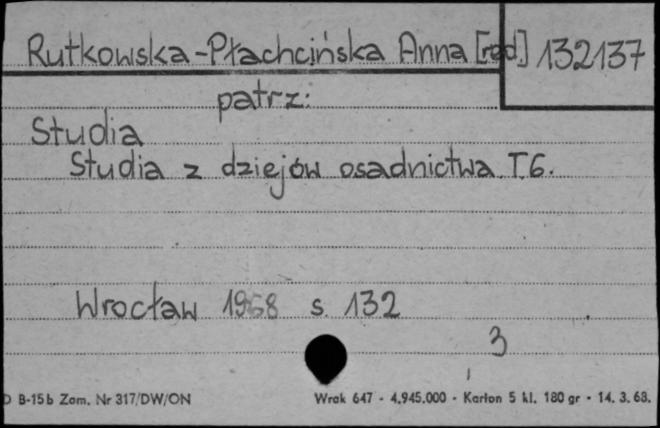 Rutkowska-Płachcińska Anna [red] 132137
patrz:
Studia
Studia z dziejów osadnictwa T.6.
Wrocław 1968 s. 132
3
D B-15b Zam. Nr 317/DW/ON Wrak 647 - 4.945.000 - Karton 5 kl. 180 gr - 14. 3. 68.